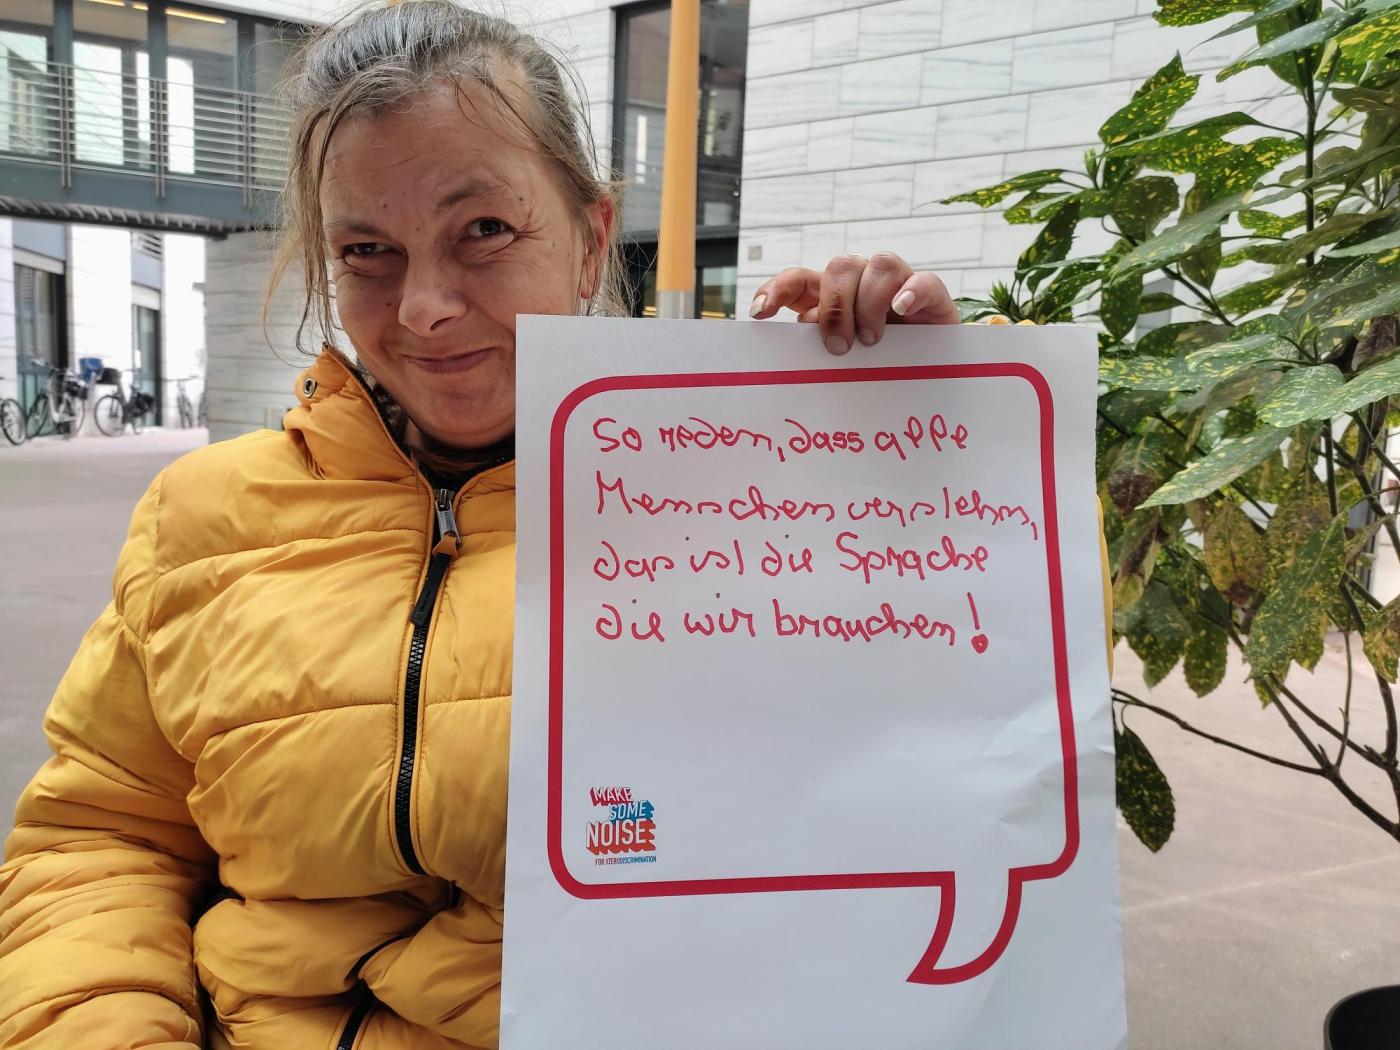 So reden, dass alle
Menschen verstehn,
das ist die Sprache
die wir brauchen!
MAKE
SOME
NOISE
FOR #ZERODISCRIMINATION